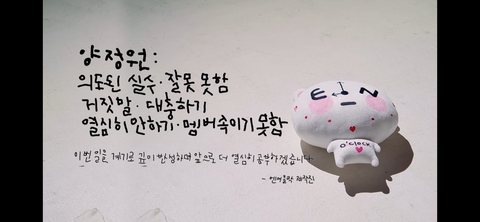 양정원:
의도된 실수·잘못 못함
거짓말·대충하기
열심히 안하기·멤버속이기 못함
이번 일을 계기로 깊이 반성하며 앞으로 더 열심히 공부하겠습니다
- 엔오클락 제작진
EIN
O'CLOCK